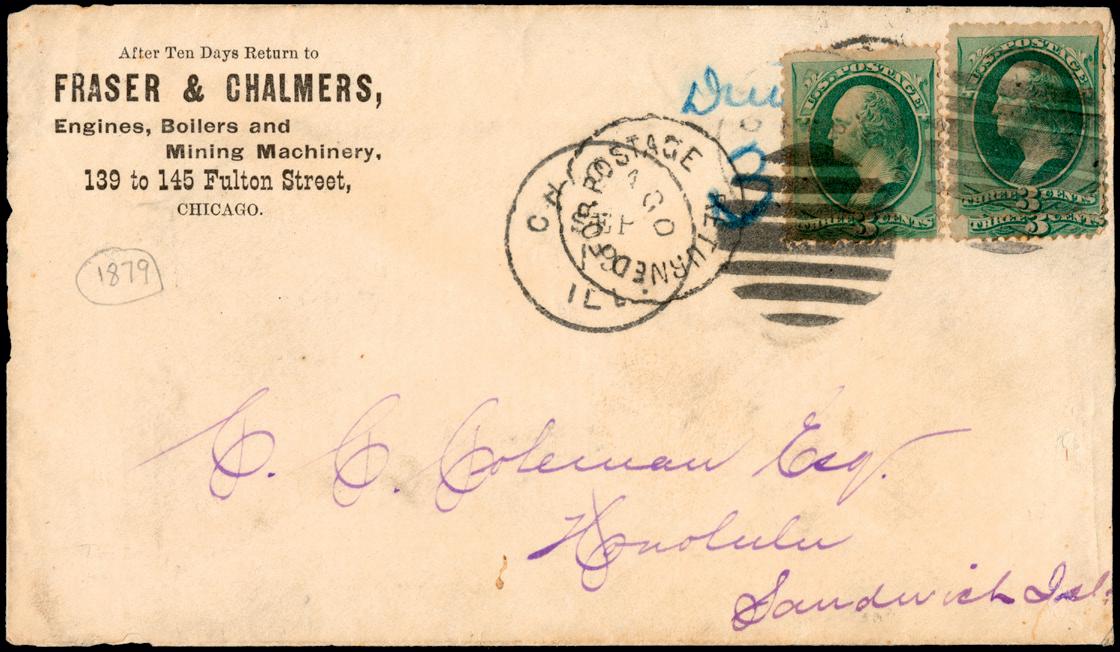 After Ten Days Return to
FRASER & CHALMERS,
Engines, Boilers and
Mining Machinery,
139 to 145 Fulton Street,
CHICAGO.
1879
RETURNED FOR POSTAGE
SEP
ILL
U.S. POSTAGE
THREE 3 CENTS
U.S. POSTAGE
3
THREE 3 CENTS
C. C. Coleman Esq.
Honolulu
Sandwich Isl.